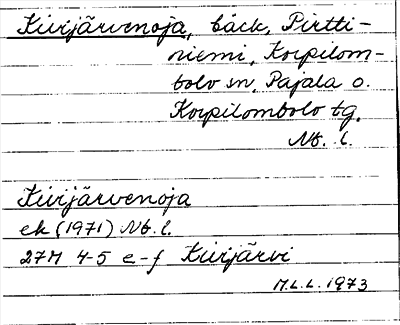 Kivijärvenoja, bäck, Pirtti-
niemi, Korpilom-
bolo sn, Pajala o.
Korpilombolo tg,
Nb. l.
Kivijärvenoja
ek (1971) Nb. l.
27M 4-5 e-f Kivijärvi
M.L.L. 1973